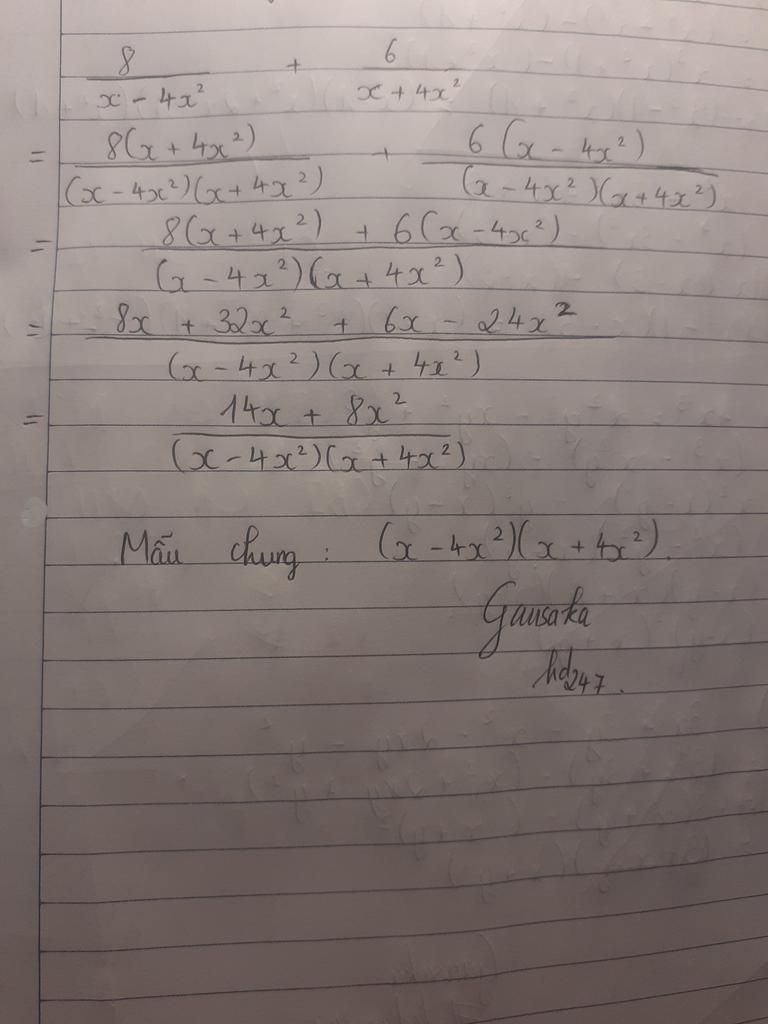 8/(x - 4x²) + 6/(x + 4x²)
= 8(x + 4x²)/((x - 4x²)(x + 4x²)) + 6(x - 4x²)/((x - 4x²)(x + 4x²))
= (8(x + 4x²) + 6(x - 4x²))/((x - 4x²)(x + 4x²))
= (8x + 32x² + 6x - 24x²)/((x - 4x²)(x + 4x²))
= (14x + 8x²)/((x - 4x²)(x + 4x²))
Mẫu chung : (x - 4x²)(x + 4x²).
Gausaka
hd247.